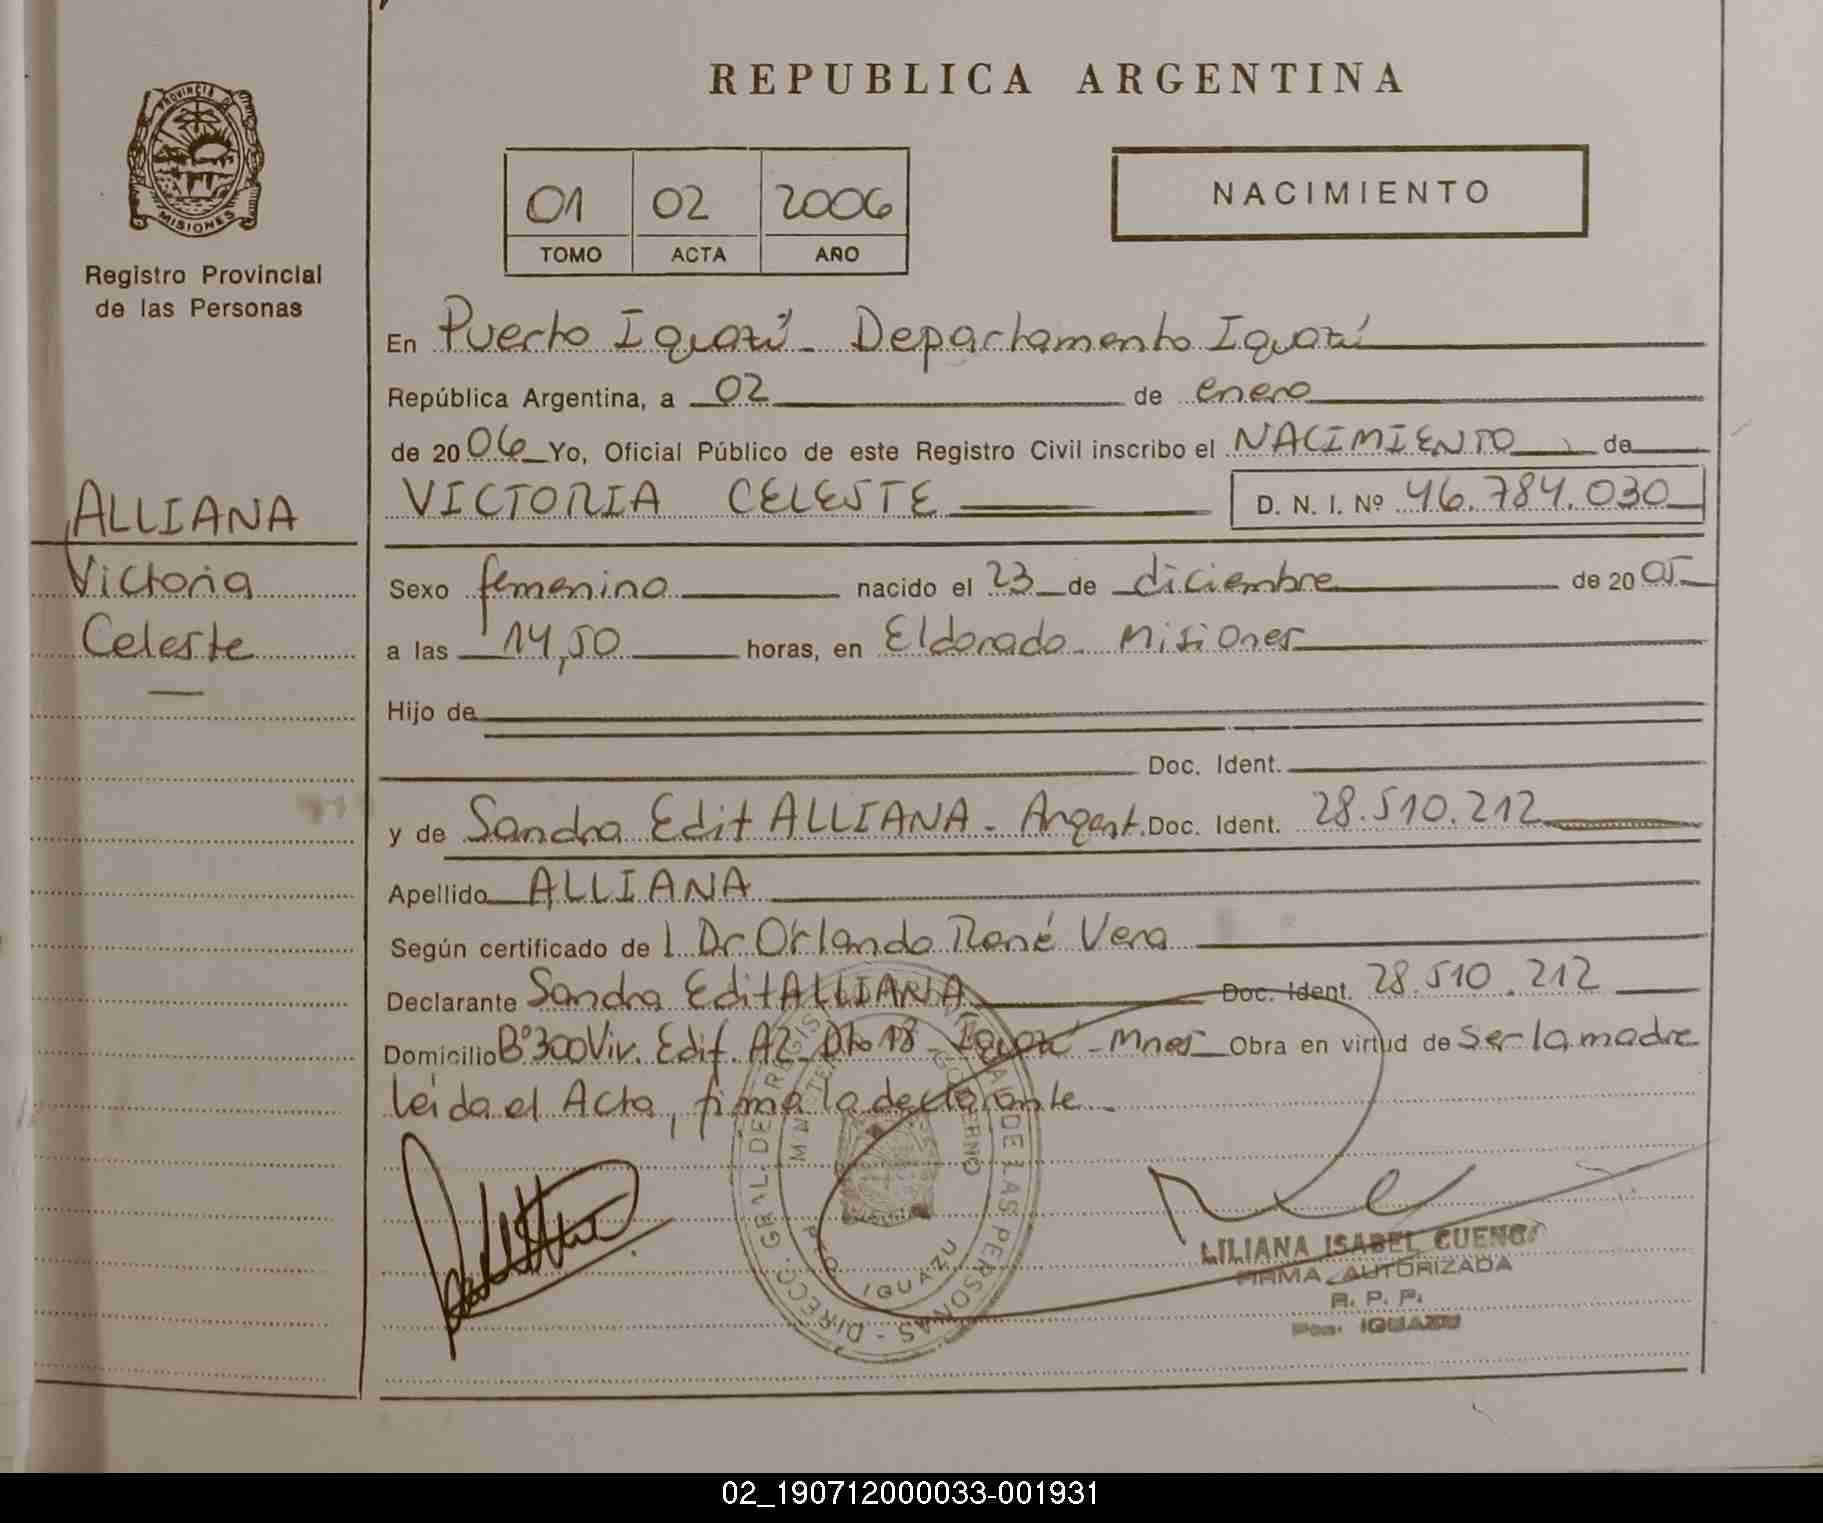 REPUBLICA ARGENTINA
PROVINCIA DE
MISIONES
Registro Provincial
de las Personas
01 02 2006
TOMO ACTA AÑO
NACIMIENTO
En Puerto Iguazú - Departamento Iguazú
República Argentina, a 02 de enero
de 2006 Yo, Oficial Público de este Registro Civil inscribo el NACIMIENTO de
VICTORIA CELESTE D. N. I. Nº 46.784.030
ALLIANA
Victoria
Celeste
Sexo femenino nacido el 23 de diciembre de 2005
a las 14,50 horas, en Eldorado - Misiones
Hijo de
Doc. Ident.
y de Sandra Edit ALLIANA - Argent. Doc. Ident. 28.510.212
Apellido ALLIANA
Según certificado de l Dr Orlando René Vera
Declarante Sandra Edit ALLIANA Doc. Ident. 28.510.212
Domicilio Bº 300 Viv. Edif. A2 - Dto 18 - Iguazú - Mnes Obra en virtud de ser la madre
leída el Acta, firma la declarante
DIRECC. GRAL. DE REGIS DE LAS PERSONAS
GOBIERNO
IGUAZU
LILIANA ISABEL CUENCA
FIRMA AUTORIZADA
R. P. P.
IGUAZU
02_190712000033-001931